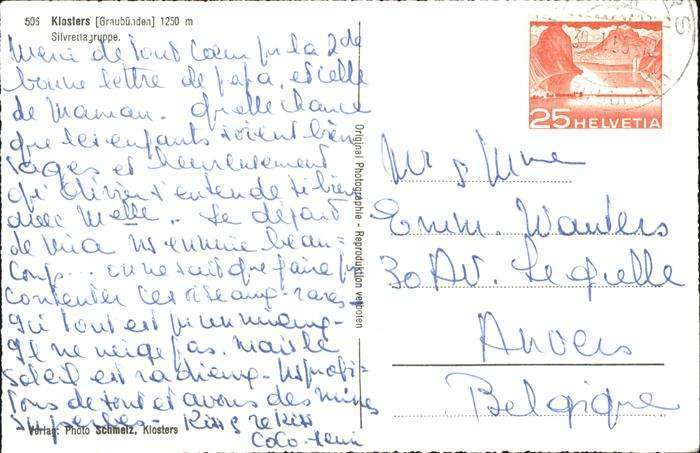 506 Klosters [Graubünden] 1250 m
Silvrettagruppe.
Merci de tout coeur pr la 2de
bonne lettre de papa, et celle
de Maman. quelle chance
que les enfants soient bien
sages et heureusement
qu'Olivier s'entende si bien
avec Melle.. Le départ
de Mia ns ennuie beau=
coup. on ne sait que faire pr
contenter ces oiseaux-rares-
qui tout est pr un mieux-
Il ne neige pas. mais le
soleil est radieux- ns profi-
tons de tout et avons des mines
superbes- Kiss & reKiss
Coco-
Verlag: Photo Schmelz, Klosters
Original Photographie - Reproduktion verboten
25 HELVETIA
Mr & Mme
Emm. Wauters
30 AV. Le grelle
Anvers
Belgique